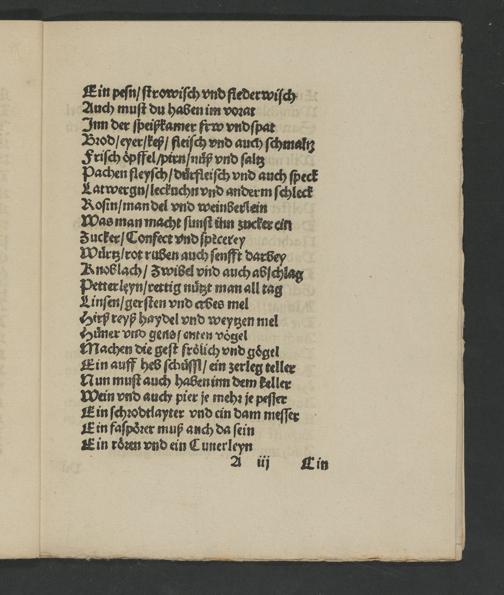 Ein pesn/ strowisch vnd flederwisch
Auch must du haben im vorat
Inn der speißkamer frw vnd spat
Brod/ eyer/ keß/ fleisch vnd auch schmaltz
Frisch öpffel/ pirn/ nüß vnd saltz
Pachen fleysch/ dürfleisch vnd auch speck
Latwergn/ leckuchn vnd anderm schleck
Rosin/ mandel vnd weinberlein
Was man macht sunst inn zucker ein
Zucker/ Confect vnd specerey
Würtz/ rot ruben auch senfft darbey
Knoblach/ Zwibel vnd auch abschlag
Petterleyn/ rettig nützt man all tag
Linsen/ gersten vnd erbes mel
Hirß reyß haydel vnd weytzen mel
Hüner vnd gens/ enten vögel
Machen die gest frölich vnd gögel
Ein auff heb schüssl/ ein zerleg teller
Nun must auch haben inn dem keller
Wein vnd auch pier je mehr je pesser
Ein schrodtlayter vnd ein dam messer
Ein faspörer muß auch da sein
Ein rören vnd ein Cunerleyn
A iij Ein